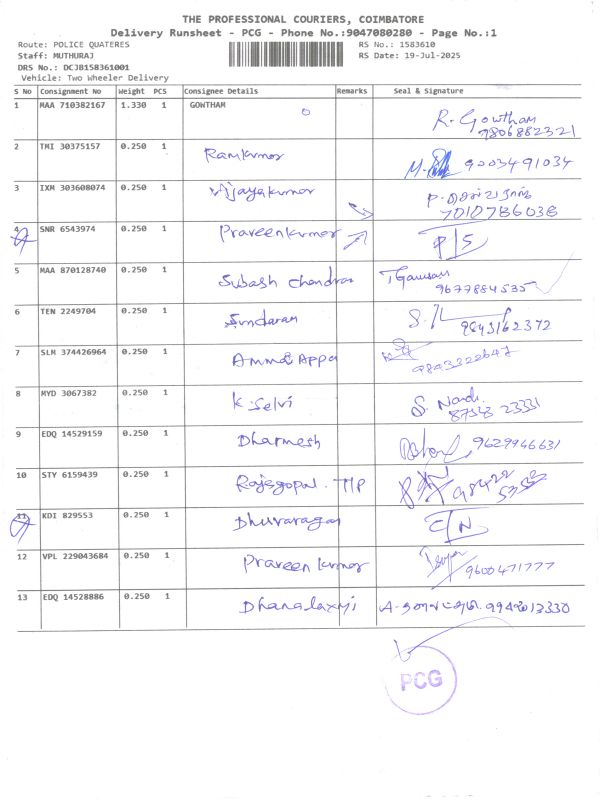 THE PROFESSIONAL COURIERS, COIMBATORE
Delivery Runsheet - PCG - Phone No.:9047080280 - Page No.:1
Route: POLICE QUATERES RS No.: 1583610
Staff: MUTHURAJ RS Date: 19-Jul-2025
DRS No.: DCJB158361001
Vehicle: Two Wheeler Delivery
S No Consignment No Weight PCS Consignee Details Remarks Seal & Signature
1 MAA 710382167 1.330 1 GOWTHAM R. Gowtham
9806882321
2 TMI 30375157 0.250 1 Ramkumar 9003491034
3 IXM 303608074 0.250 1 Vijayakumar
7010786038
4 SNR 6543974 0.250 1 Praveenkumar P/S
5 MAA 870128740 0.250 1 Subash Chandran
9677884535
6 TEN 2249704 0.250 1 Sundaram 9843162372
7 SLM 374426964 0.250 1 Amma Appa 9843322647
8 MYD 3067382 0.250 1 K. Selvi S. Nandi
87543 23331
9 EDQ 14529159 0.250 1 Dharmesh 9629946631
10 STY 6159439 0.250 1 Rajagopal. T/P 98422
11 KDI 829553 0.250 1 Dhuvaragan C/N
12 VPL 229043684 0.250 1 Praveen kumar 9600471777
13 EDQ 14528886 0.250 1 Dhanalaxmi A. தனலட்சுமி. 9942013330
PCG